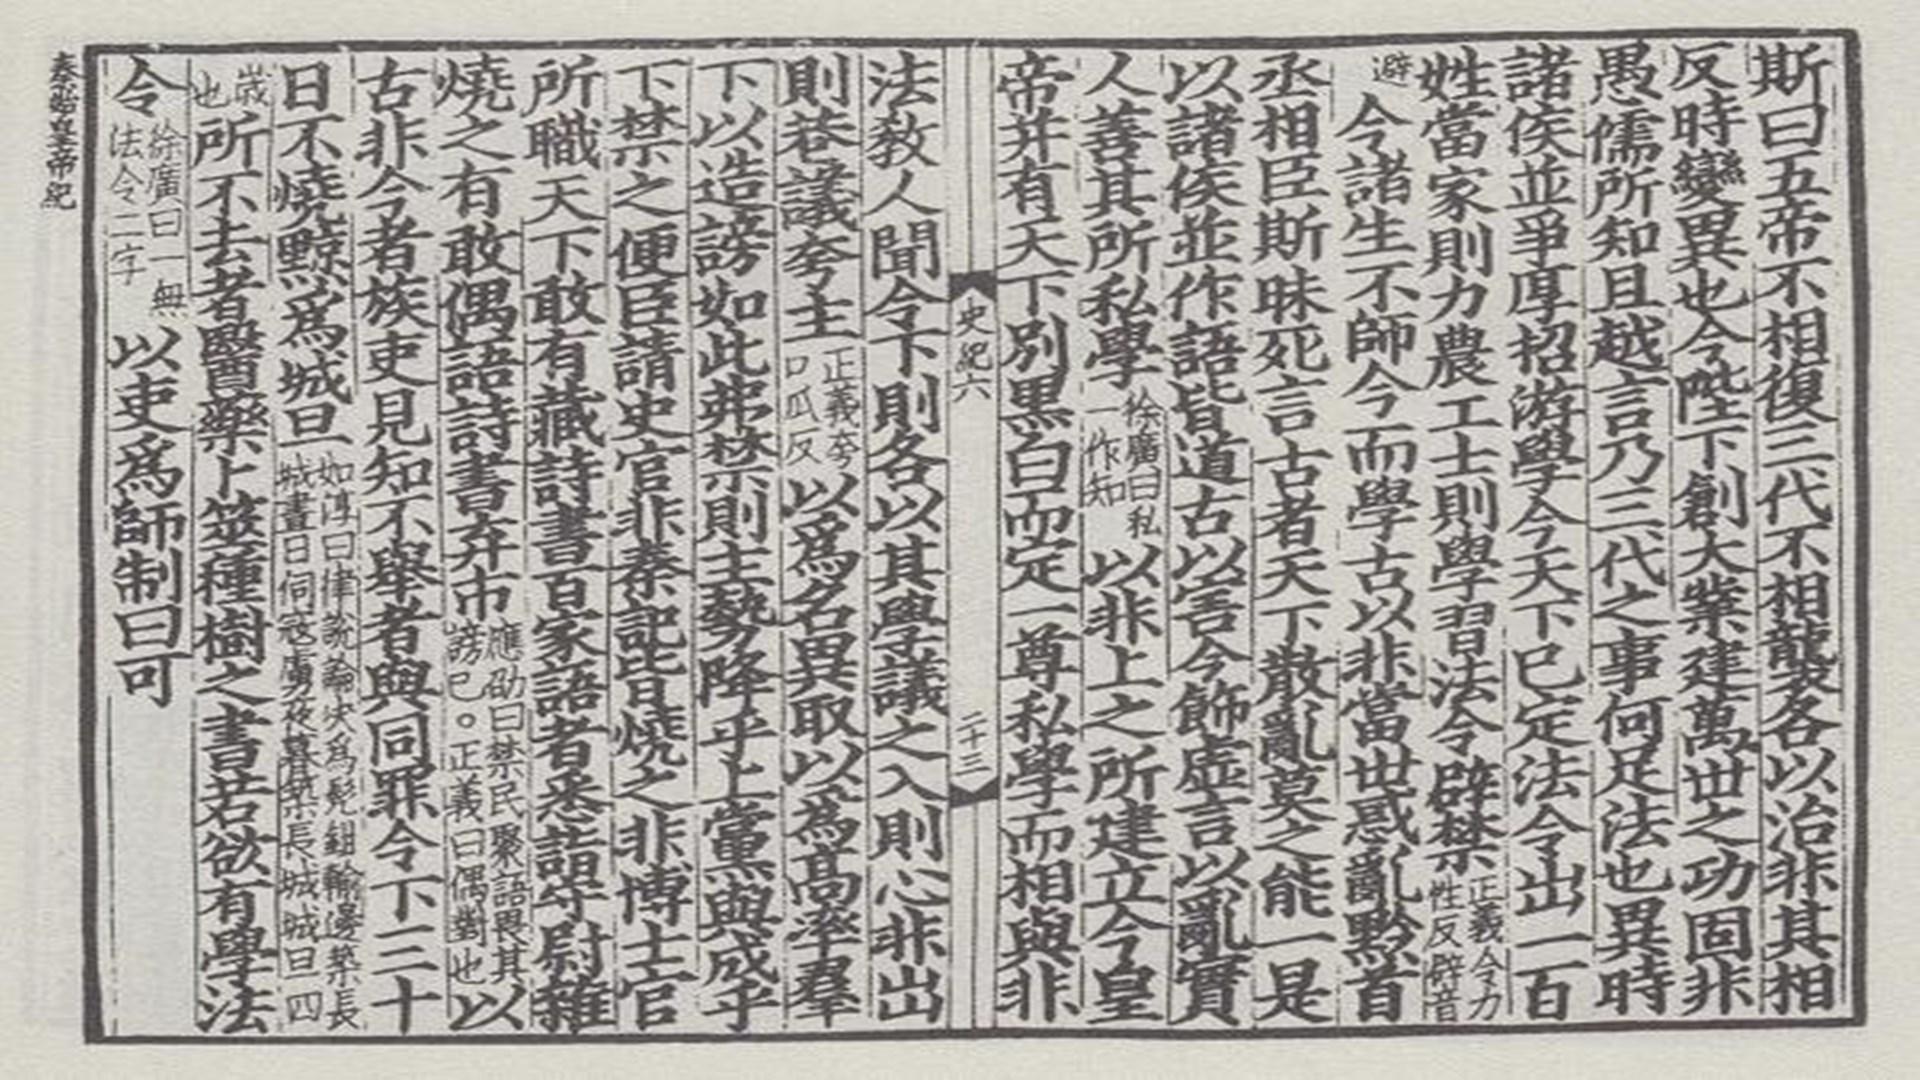 斯曰五帝不相復三代不相襲各以治非其相
反時變異也今陛下創大業建萬世之功固非
愚儒所知且越言乃三代之事何足法也異時
諸侯並爭厚招游學今天下已定法令出一百
姓當家則力農工士則學習法令辟禁正義令力性反辟音
避今諸生不師今而學古以非當世惑亂黔首
丞相臣斯昧死言古者天下散亂莫之能一是
以諸侯並作語皆道古以害今飾虛言以亂實
人善其所私學徐廣曰私一作知以非上之所建立今皇
帝并有天下別黑白而定一尊私學而相與非
史紀六
二十三
法教人聞令下則各以其學議之入則心非出
則巷議夸主正義夸口瓜反以爲名異取以爲高率羣
下以造謗如此弗禁則主勢降乎上黨與成乎
下禁之便臣請史官非秦記皆燒之非博士官
所職天下敢有藏詩書百家語者悉詣守尉雜
燒之有敢偶語詩書弃市應劭曰禁民聚語畏其謗已。正義曰偶對也以
古非今者族吏見知不舉者與同罪令下三十
日不燒黥爲城旦如淳曰律說論決爲髡鉗輸邊築長城晝日伺寇虜夜暮築長城城旦四
歲也所不去者醫藥卜筮種樹之書若欲有學法
令徐廣曰一無法令二字以吏爲師制曰可
秦始皇帝紀